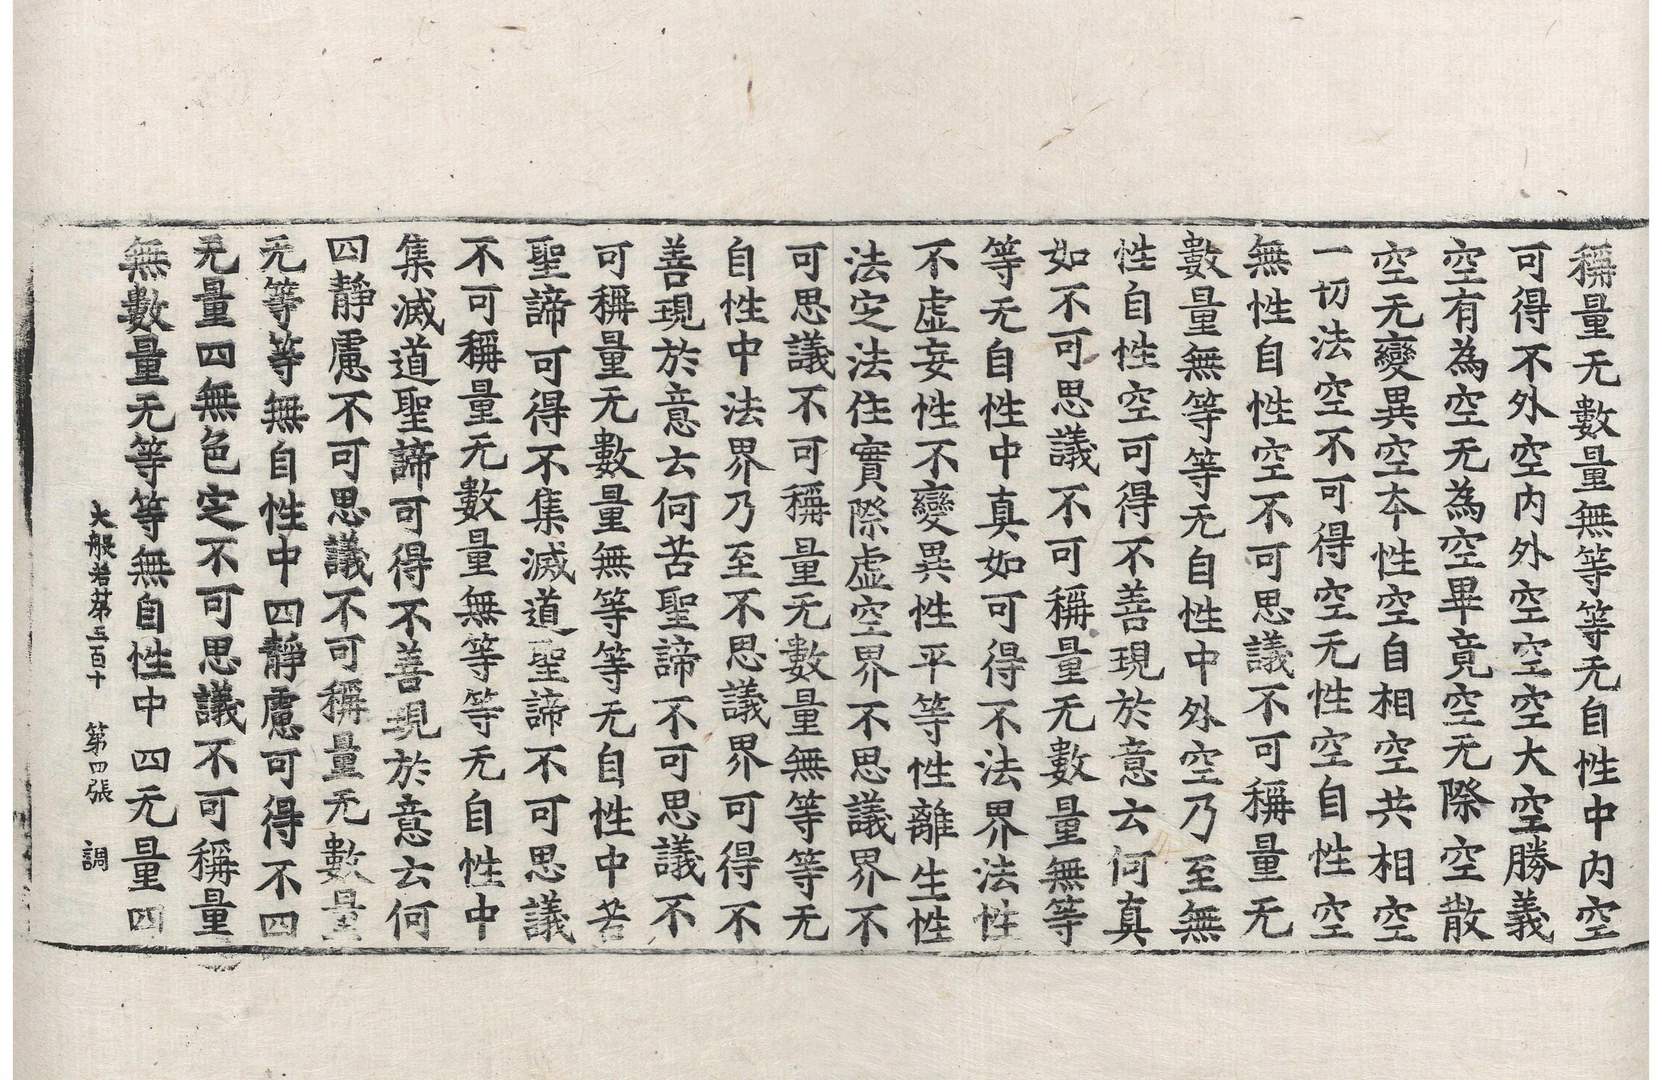 稱量无數量無等等无自性中內空
可得不外空內外空空空大空勝義
空有為空无為空畢竟空无際空散
空无變異空本性空自相空共相空
一切法空不可得空无性空自性空
無性自性空不可思議不可稱量无
數量無等等无自性中外空乃至無
性自性空可得不善現於意云何真
如不可思議不可稱量无數量無等
等无自性中真如可得不法界法性
不虛妄性不變異性平等性離生性
法定法住實際虛空界不思議界不
可思議不可稱量无數量無等等无
自性中法界乃至不思議界可得不
善現於意云何苦聖諦不可思議不
可稱量无數量無等等无自性中苦
聖諦可得不集滅道聖諦不可思議
不可稱量无數量無等等无自性中
集滅道聖諦可得不善現於意云何
四靜慮不可思議不可稱量无數量
无等等無自性中四靜慮可得不四
无量四無色定不可思議不可稱量
無數量无等等無自性中四无量四
大般若第五百十 第四張 調